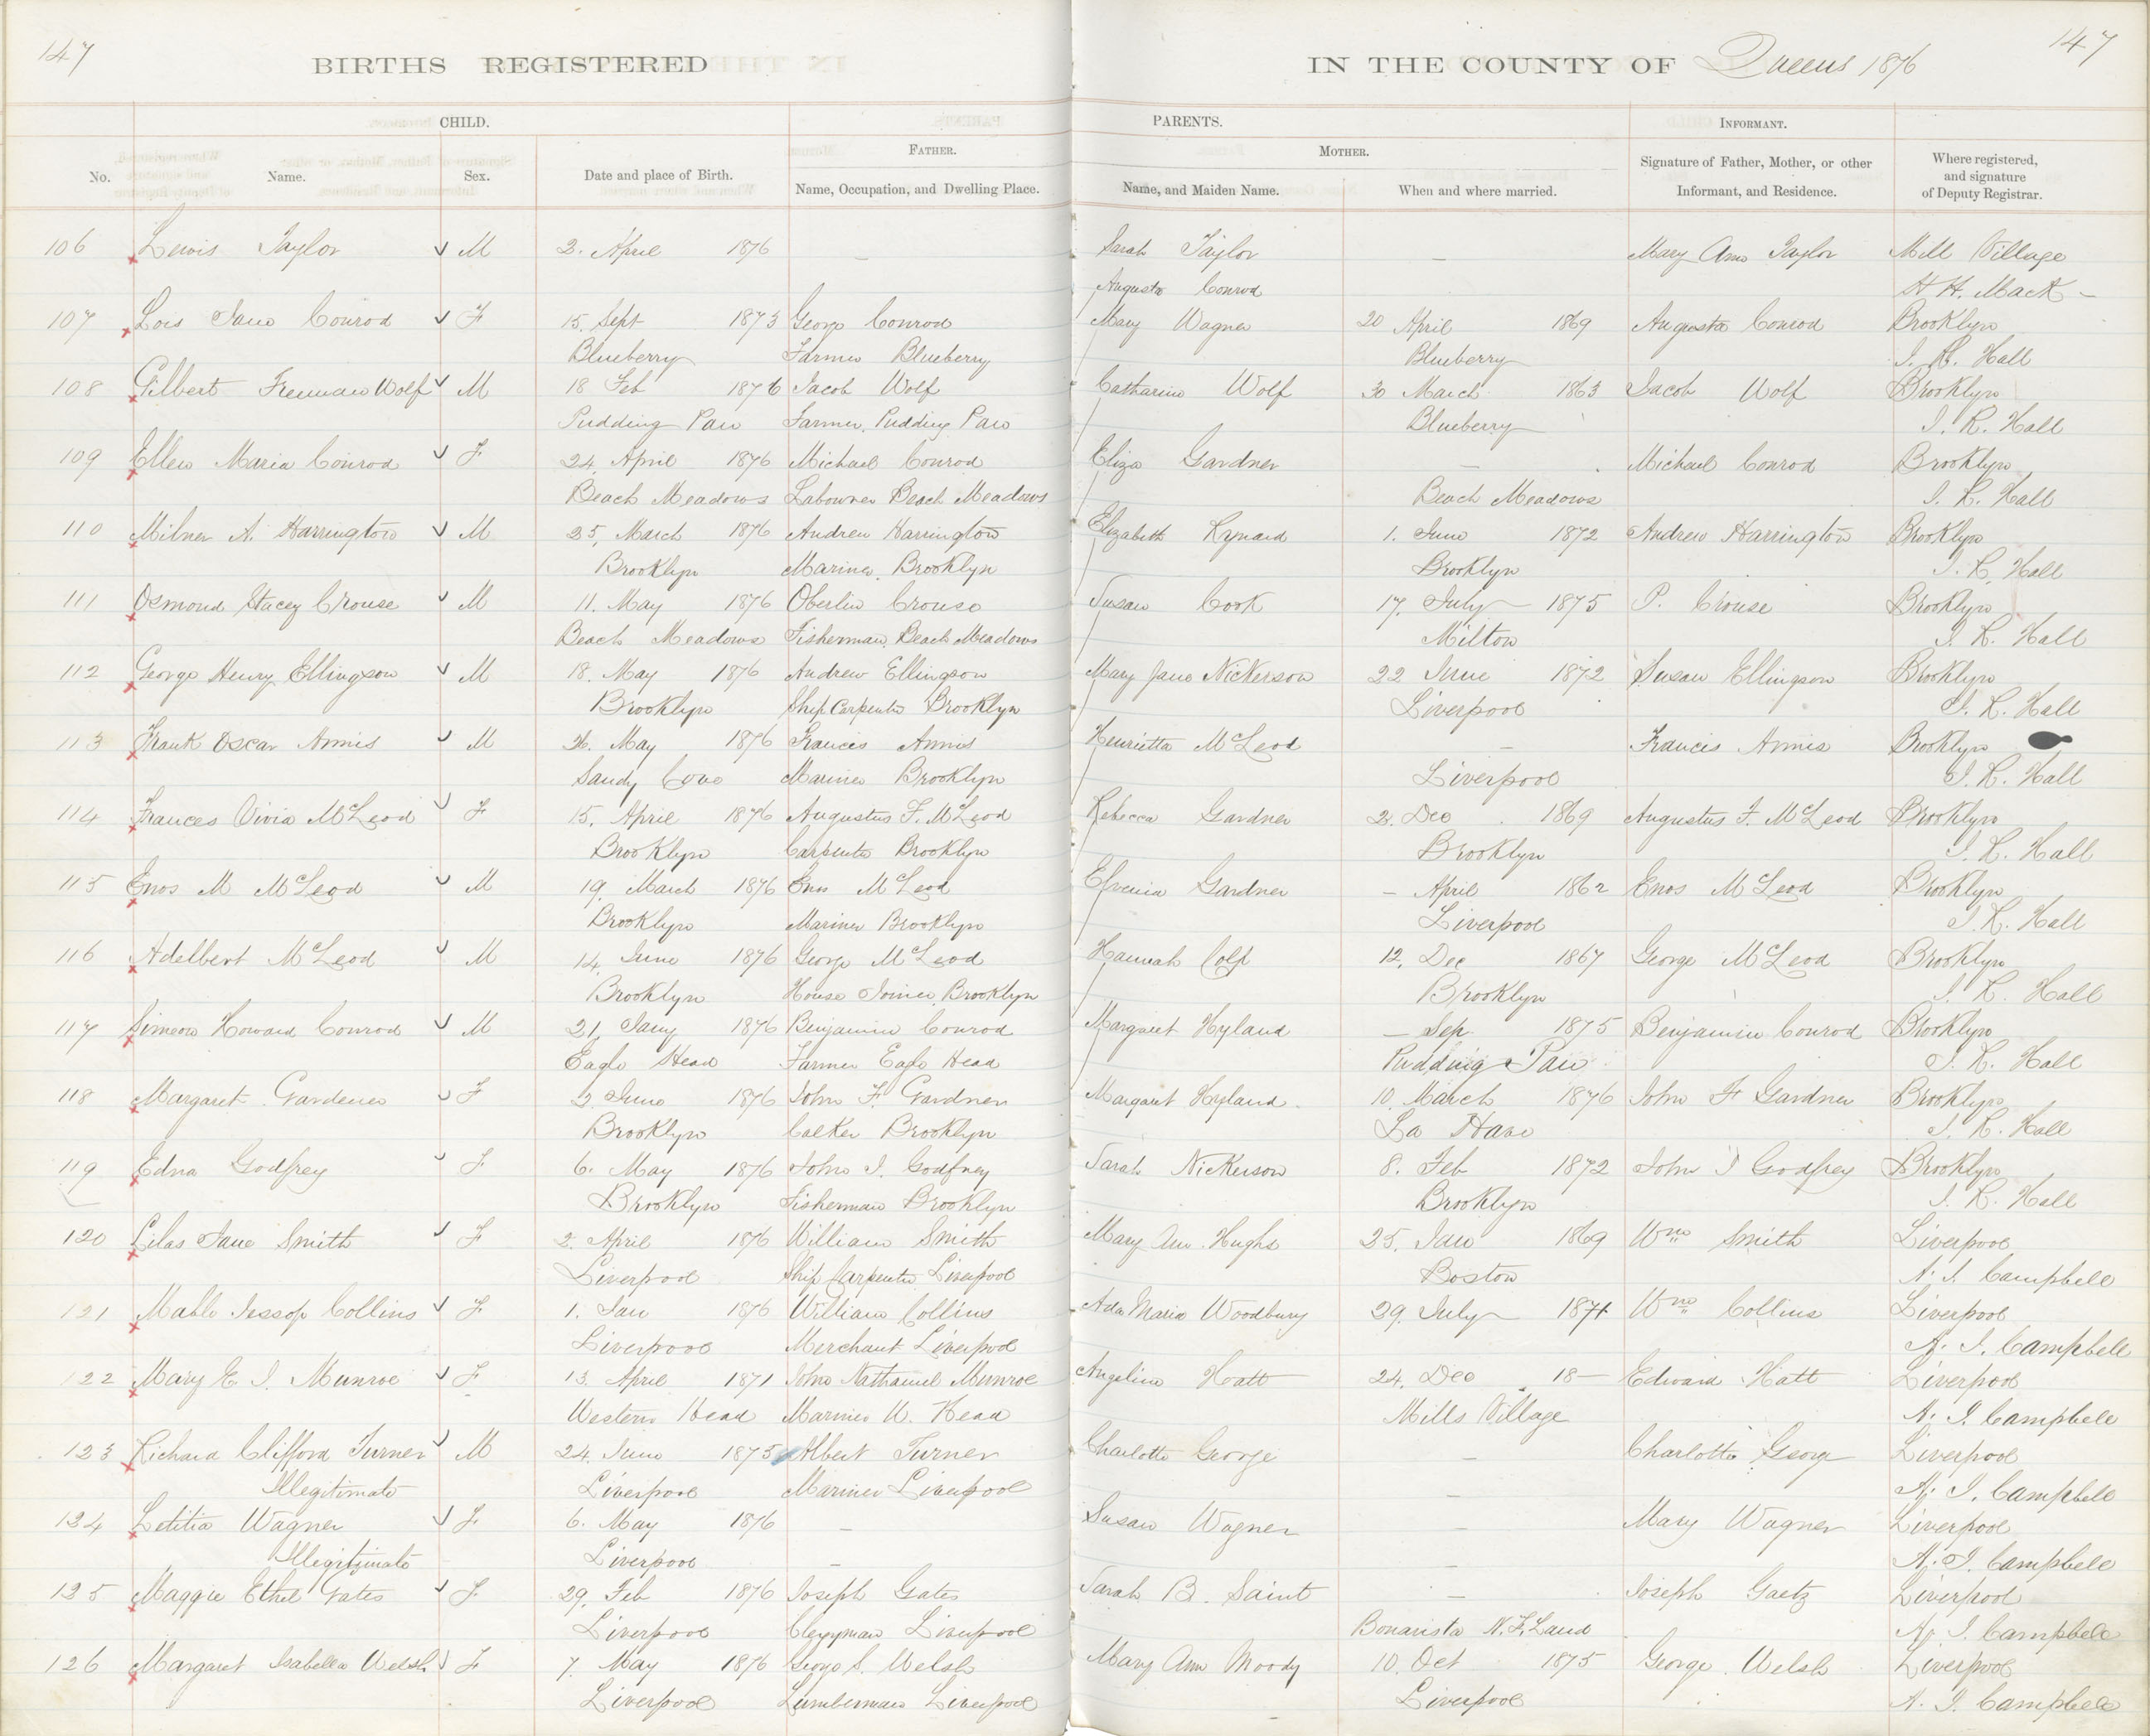 147
147
BIRTHS REGISTERED IN THE COUNTY OF Queens 1876
CHILD. PARENTS. INFORMANT.
FATHER. MOTHER.
No. Name. Sex. Date and place of Birth. Name, Occupation, and Dwelling Place. Name, and Maiden Name. When and where married. Signature of Father, Mother, or other Informant, and Residence. Where registered, and signature of Deputy Registrar.
106 Lewis Taylor M 2. April 1876 — Sarah Taylor — Mary Ann Taylor Mill Village
Augusta Conrod H H. Mack –
107 Lois Jane Conrod F 15. Sept 1873 George Conrod Mary Wagner 20 April 1869 Augusta Conrod Brooklyn
Blueberry Farmer Blueberry Blueberry I. R. Hall
108 Gilbert Freeman Wolf M 18 Feb 1876 Jacob Wolf Catharine Wolf 30 March 1863 Jacob Wolf Brooklyn
Pudding Pan Farmer, Pudding Pan Blueberry I. R. Hall
109 Ellen Maria Conrod F 24. April 1876 Michael Conrod Eliza Gardner — Michael Conrod Brooklyn
Beach Meadows Labourer Beach Meadows Beach Meadows I. R. Hall
110 Milner A. Harrington M 25. March 1876 Andrew Harrington Elizabeth Rynard 1. June 1872 Andrew Harrington Brooklyn
Brooklyn Mariner, Brooklyn Brooklyn I. R. Hall
111 Osmond Stacey Crouse M 11. May 1876 Oberlin Crouse Susan Cook 17. July 1875 P. Crouse Brooklyn
Beach Meadows Fisherman, Beach Meadows Milton I. R. Hall
112 George Henry Ellingson M 18. May 1876 Andrew Ellingson Mary Jane Nickerson 22 June 1872 Susan Ellingson Brooklyn
Brooklyn Ship Carpenter Brooklyn Liverpool I. R. Hall
113 Frank Oscar Annis M 26. May 1876 Francis Annis Henrietta McLeod — Francis Annis Brooklyn
Sandy Cove Mariner Brooklyn Liverpool I. R. Hall
114 Frances Vivia McLeod F 15. April 1876 Augustus F. McLeod Rebecca Gardner 2. Dec 1869 Augustus F. McLeod Brooklyn
Brooklyn Carpenter Brooklyn Brooklyn I. R. Hall
115 Enos M McLeod M 19. March 1876 Enos McLeod Gardner – April 1862 Enos McLeod Brooklyn
Brooklyn Mariner Brooklyn Liverpool I. R. Hall
116 Adelbert McLeod M 14. June 1876 George McLeod Hannah Colp 12. Dec 1867 George McLeod Brooklyn
Brooklyn House Joiner, Brooklyn Brooklyn I. R. Hall
117 Simeon Howard Conrod M 21. Jany 1876 Benjamin Conrod Margaret Hyland — Sep. 1875 Benjamin Conrod Brooklyn
Eagle Head Farmer Eagle Head Pudding Pan I. R. Hall
118 Margaret Gardener F 2. June 1876 John F. Gardner Margaret Hyland. 10. March 1876 John F Gardner Brooklyn
Brooklyn Calker Brooklyn La Have I. R. Hall
119 Edna Godfrey F 6. May 1876 John I. Godfrey Sarah Nickerson 8. Feb 1872 John I Godfrey Brooklyn
Brooklyn Fisherman Brooklyn Brooklyn I. R. Hall
120 Lilas Jane Smith F 2. April 1876 William Smith Mary Ann Hughs 25. Jan 1869 Wm Smith Liverpool
Liverpool Ship Carpenter Liverpool Boston A. I. Campbell
121 Mable Jessop Collins F 1. Jan 1876 William Collins Ada Maria Woodbury 29. July 1871 Wm Collins Liverpool
Liverpool Merchant Liverpool A. I. Campbell
122 Mary E I. Munroe F 13. April 1871 John Nathaniel Munroe Angelina Hatt 24. Dec 18— Edward Hatt Liverpool
Western Head Mariner W. Head Mills Village A. I. Campbell
123 Richard Clifford Turner M 24. June 1875 Albert Turner Charlotte George — Charlotte George Liverpool
Illegitimate Liverpool Mariner Liverpool — A. I. Campbell
124 Letitia Wagner F. 6. May 1876 — Susan Wagner — Mary Wagner Liverpool
Illegitimate Liverpool — — A. I. Campbell
125 Maggie Ethel Gates F. 29. Feb 1876 Joseph Gates Sarah B. Saint — Joseph Gaetz Liverpool
Liverpool Clergyman Liverpool Bonavista N. F. Land A. I. Campbell
126 Margaret Isabella Welsh F 7. May 1876 George S. Welsh Mary Ann Moody 10. Oct 1875 George Welsh Liverpool
Liverpool Lumberman Liverpool Liverpool A. I. Campbell